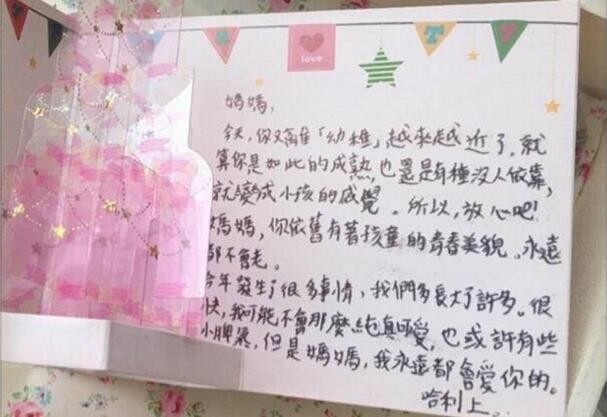 love
媽媽,
今天,你又離「幼稚」越來越近了。就
算你是如此的成熟,也還是有種沒人依靠,
就變成小孩的感覺。所以,放心吧!
媽媽,你依舊有著孩童的青春美貌。永遠
都不會老。
今年發生了很多事情,我們都長大了許多。很
快,我可能不會那麼純真可愛,也或許有些
小脾氣,但是媽媽,我永遠都會愛你的。
哈利上